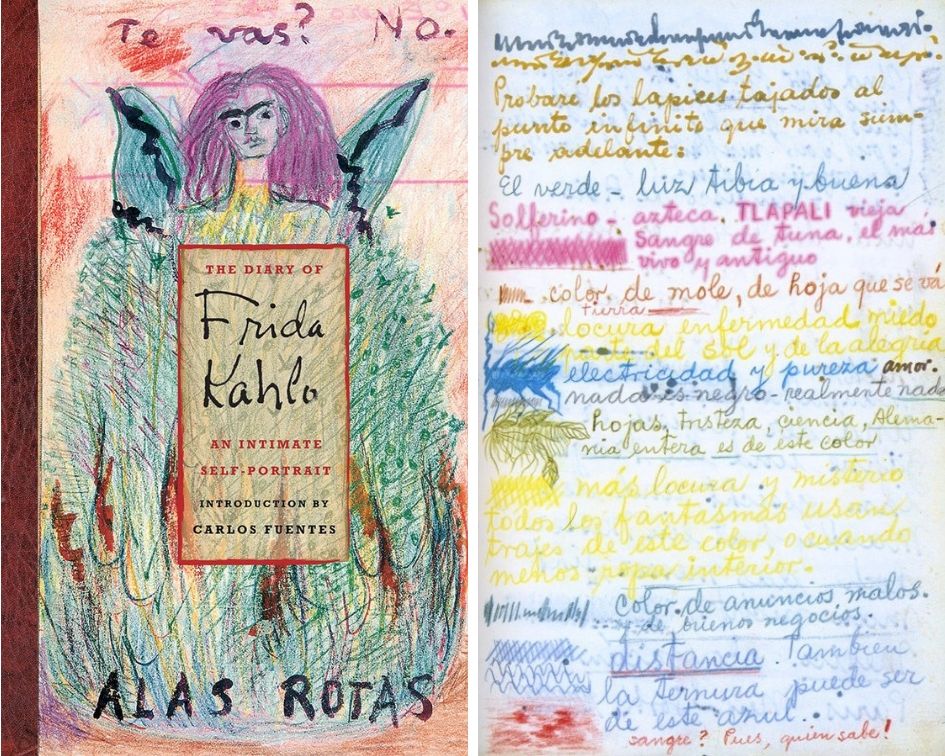 Te vas? No.
THE DIARY OF
Frida
Kahlo
AN INTIMATE
SELF-PORTRAIT
INTRODUCTION BY
CARLOS FUENTES
ALAS ROTAS
Probaré los lapices tajados al
punto infinito que mira siem-
pre adelante:
El verde - luz tibia y buena
Solferino - azteca. TLAPALI vieja
Sangre de tuna, el más
vivo y antiguo
color de mole, de hoja que se va
tierra
locura enfermedad miedo
parte del sol y de la alegria
electricidad y pureza amor.
nada es negro - realmente nada
hojas, tristeza, ciencia, Alema-
nia entera es de este color
más locura y misterio
todos los fantasmas usan
trajes de este color, o cuando
menos ropa interior.
color de anuncios malos.
y de buenos negocios.
distancia. Tambien
la ternura puede ser
de este azul.
sangre? Pues, quien sabe!